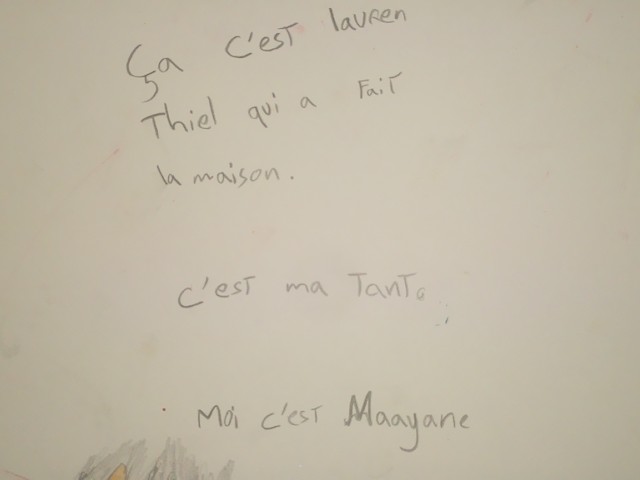 Ça c'est lauren
Thiel qui a Fait
la maison.
c'est ma Tante
Moi c'est Maayane